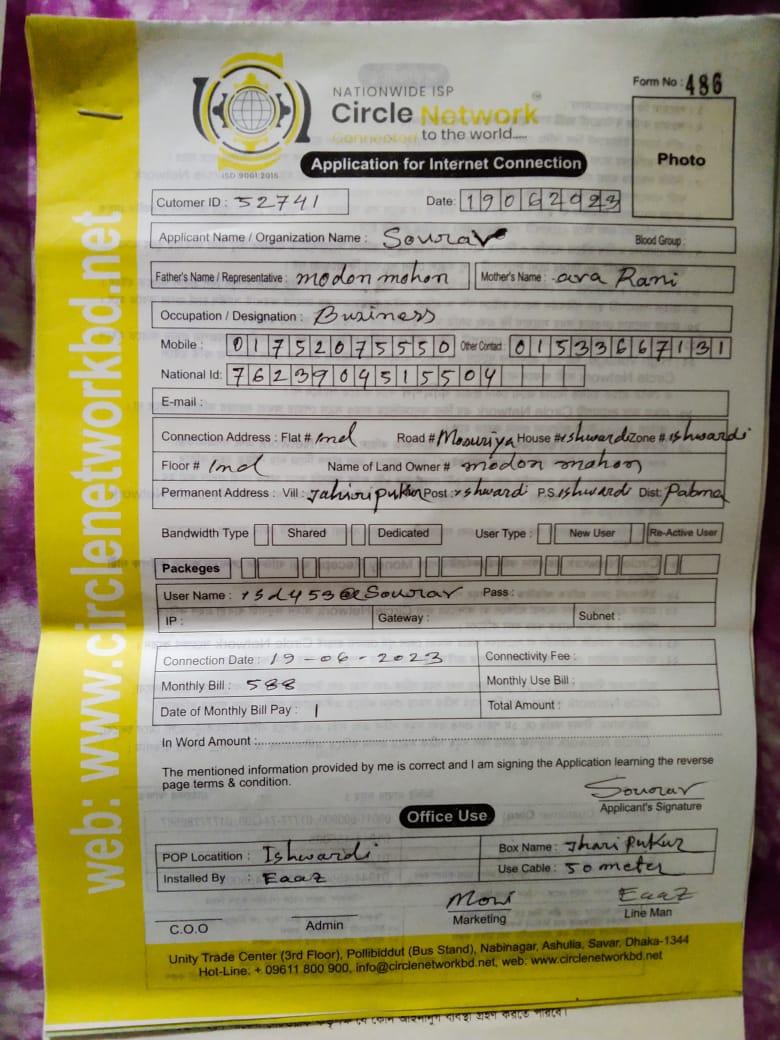 Form No : 486
NATIONWIDE ISP
Circle Network
Connected to the world.....
ISO 9001:2015
Photo
Application for Internet Connection
Cutomer ID : 52741 Date: 19062023
Applicant Name / Organization Name : Sourav Blood Group :
Father's Name / Representative : modon mohon Mother's Name : ava Rani
Occupation / Designation : Business
Mobile : 01752075550 Other Contact : 01533667131
National Id: 7623904515504
E-mail :
Connection Address : Flat # 1nd Road # Mosuriya House # ishwardi Zone # ishwardi
Floor # 1nd Name of Land Owner # modon mohon
Permanent Address : Vill : Post : ishwardi P.S. ishwardi Dist: Pabna
Bandwidth Type Shared Dedicated User Type : New User Re-Active User
Packeges
User Name : isd453@Sourav Pass :
IP : Gateway : Subnet :
Connection Date : 19-06-2023 Connectivity Fee :
Monthly Bill : 588 Monthly Use Bill :
Date of Monthly Bill Pay : 1 Total Amount :
In Word Amount :
The mentioned information provided by me is correct and I am signing the Application learning the reverse
page terms & condition.
Sourav
Applicant's Signature
Office Use
POP Locatition : Ishwardi Box Name : Jhari Pukur
Installed By : Eaaz Use Cable : 50 meter
Moni Eaaz
C.O.O Admin Marketing Line Man
Unity Trade Center (3rd Floor), Pollibiddut (Bus Stand), Nabinagar, Ashulia, Savar, Dhaka-1344
Hot-Line: + 09611 800 900, info@circlenetworkbd.net, web: www.circlenetworkbd.net
web: www.circlenetworkbd.net